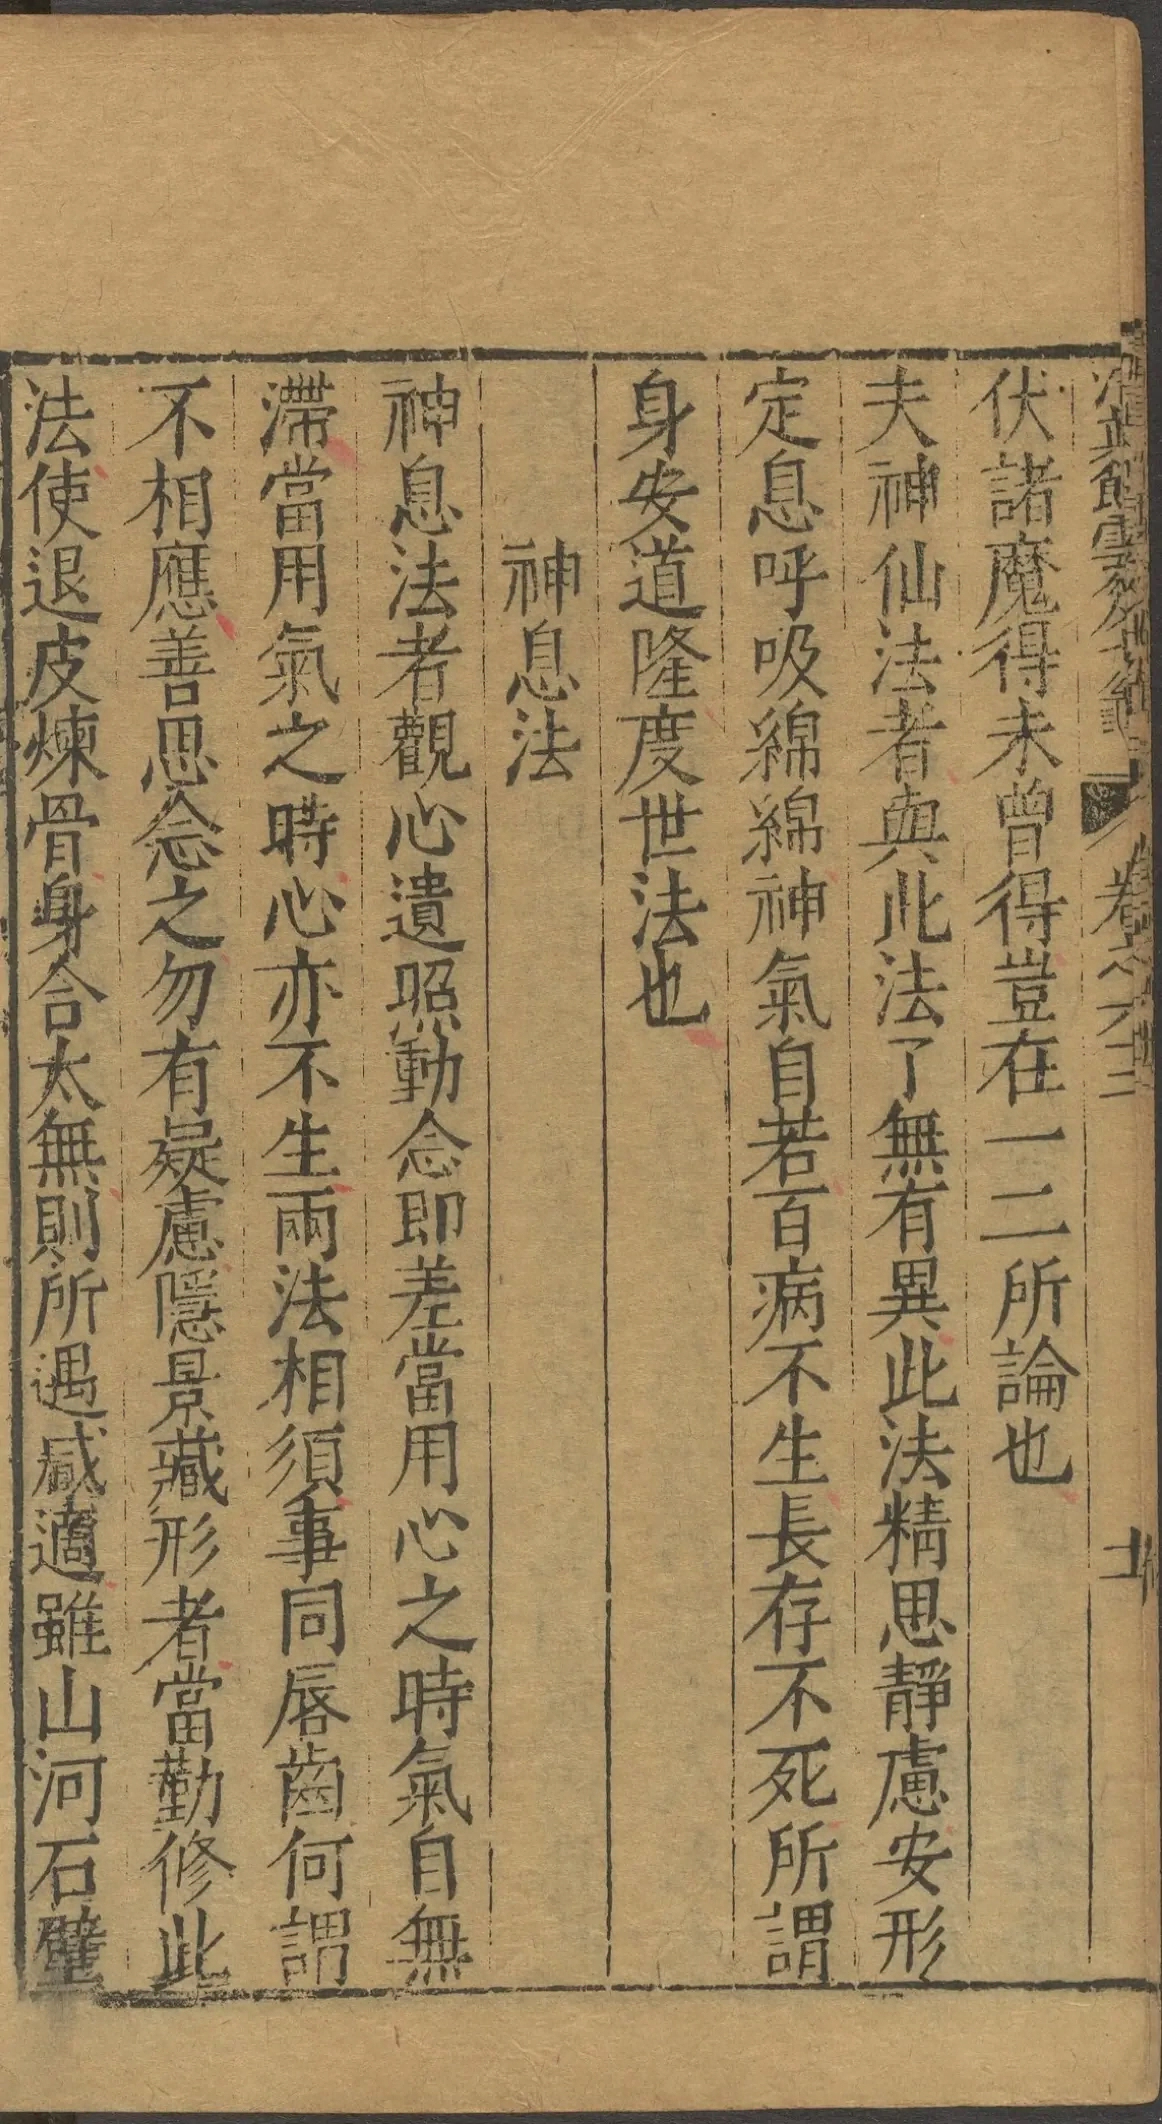 清真館雲笈七籤
卷之六三
伏諸魔得未曾得豈在一二所論也
夫神仙法者與此法了無有異此法精思靜慮安形
定息呼吸綿綿神氣自若百病不生長存不死所謂
身安道隆度世法也
神息法
神息法者觀心遺照動念即差當用心之時氣自無
滯當用氣之時心亦不生兩法相須事同唇齒何謂
不相應善思念之勿有疑慮隱景藏形者當勤修此
法使退皮煉骨身合太無則所遇咸適雖山河石壁